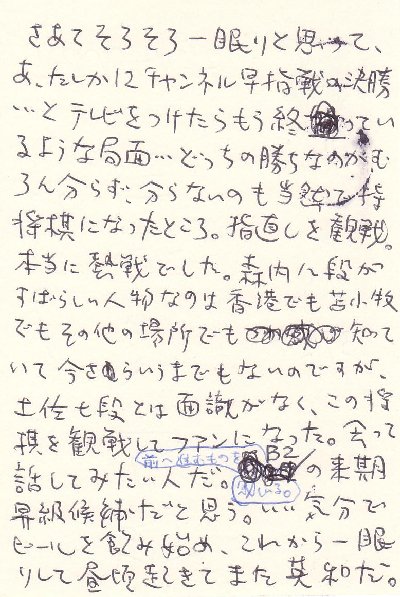 さあてそろそろ一眠りと思って、
あ、たしか12チャンネル早指戦の決勝
…とテレビをつけたらもう終ってい
るような局面…どっちの勝ちなのかむ
ろん分らず、分らないのも当然で持
将棋になったところ。指直しを観戦。
本当に熱戦でした。森内八段が
すばらしい人物なのは香港でも苫小牧
でもその他の場所でも知って
いて今さらいうまでもないのですが、
土佐七段とは面識がなく、この将
棋を観戦してファンになった。会って
話してみたい人だ。B2の来期
前へ進むものを
感じる。
昇級候補だと思う。いい気分で
ビールを飲み始め、これから一眠
りして昼頃起きてまた英和だ。